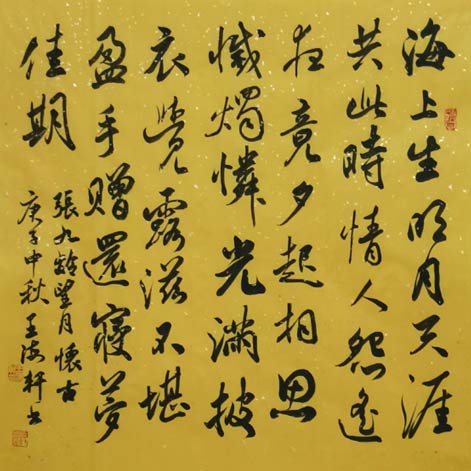 海上生明月天涯
共此時情人怨遙
夜竟夕起相思
滅燭憐光滿披
衣覺露滋不堪
盈手贈還寢夢
佳期
張九齡望月懷古
庚子中秋王海軒书